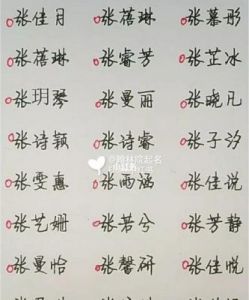 张佳月 张蓓琳 张慕彤
张蓓琳 张睿芳 张芷冰
张玥琴 张曼丽 张晓凡
张诗颖 张诗睿 张子汐
张雯惠 张雨涵 张佳说
张艺姗 张若兮 张芳静
张曼怡 张馨研 张佳悦
小红书